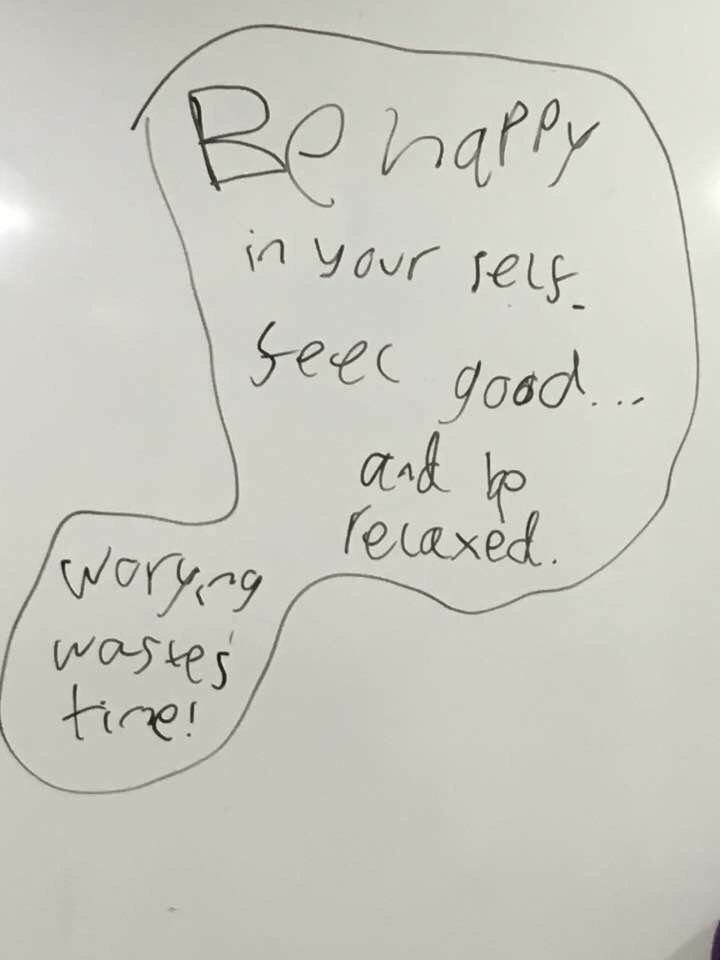 Be happy
in your self.
feel good...
and be
relaxed.
worying
wastes
time!